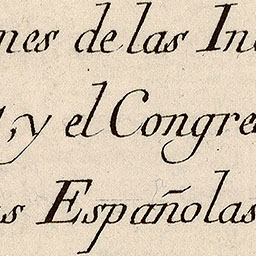 nes de las In
, y el Congre
s Españolas